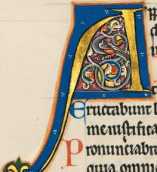 A
Eructabunt
me iustifica
Pronunciabi
quia omni